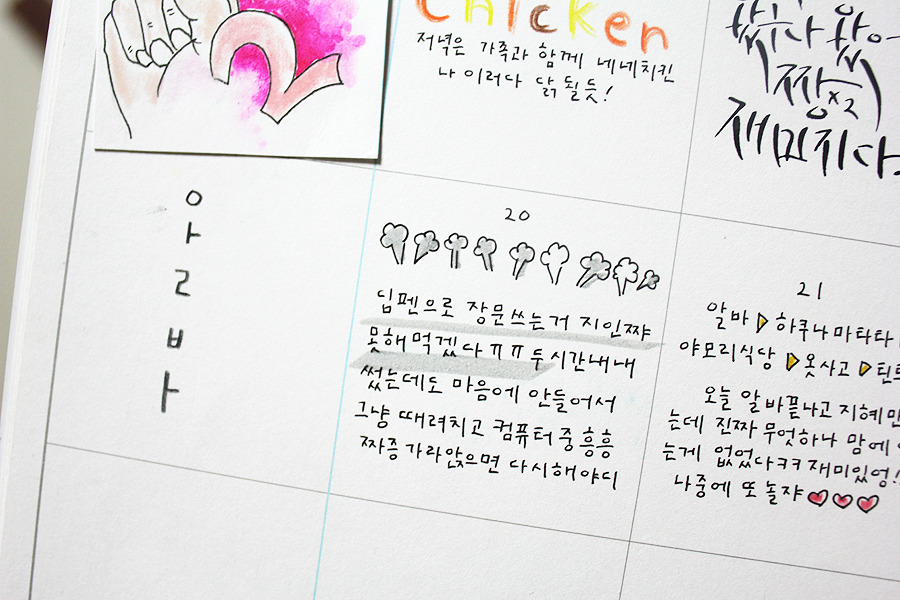 chicken
저녁은 가족과 함께 네네치킨
나 이러다 닭 될듯!
짱x2
재미지다
알바
20
딥펜으로 장문쓰는거 지인짜
못해먹겠다ㅠㅠ 두시간내내
썼는데도 마음에 안들어서
그냥 때려치고 컴퓨터중 흥흥
짜증 가라앉으면 다시해야디
21
알바 ▶ 하쿠나마타타
야모리식당 ▶ 옷사고 ▶ 틴트
오늘 알바끝나고 지혜만
는데 진짜 무엇하나 맘에
는게 없었다ㅋㅋ 재미있엉!!
나중에 또 놀쟈 ♥♥♥